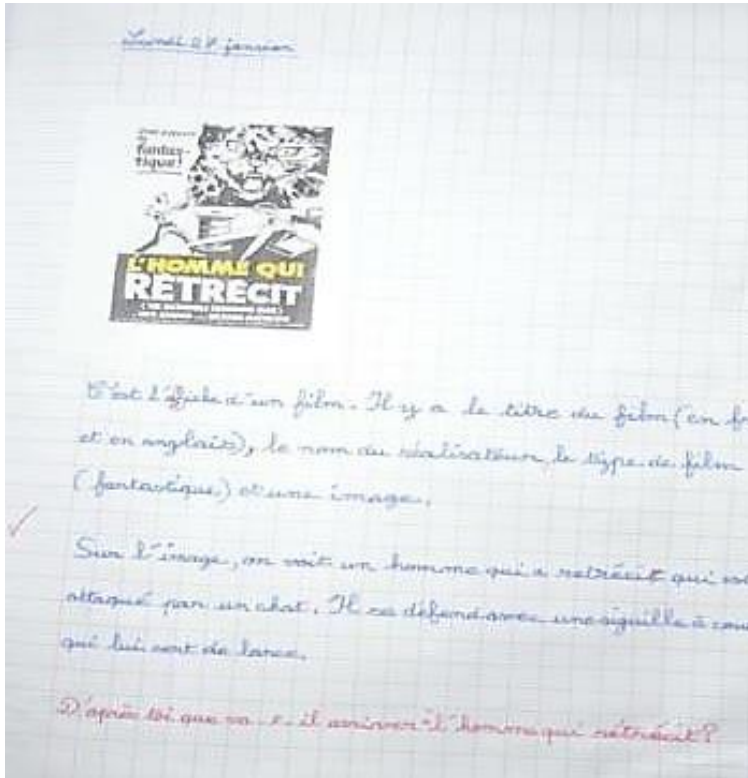 Lundi 27 janvier
fantas-
tique!
L'HOMME QUI
RÉTRÉCIT
C'est l'affiche d'un film. Il y a le titre du film (en fr
et en anglais), le nom du réalisateur, le type de film
(fantastique) et une image.
Sur l'image, on voit un homme qui a rétrécit qui
attaqué par un chat. Il se défend avec une aiguille à cou
qui lui sert de lance.
D'après toi que va-t-il arriver à l'homme qui rétrécit?